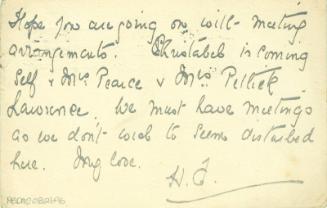 Hope you are going on with meeting
arrangements. Christabel is coming
Self & Mrs Pearce & Mrs Pethick
Lawrence. We must have meetings
as we don't wish to seem disturbed
here. My love.
H.